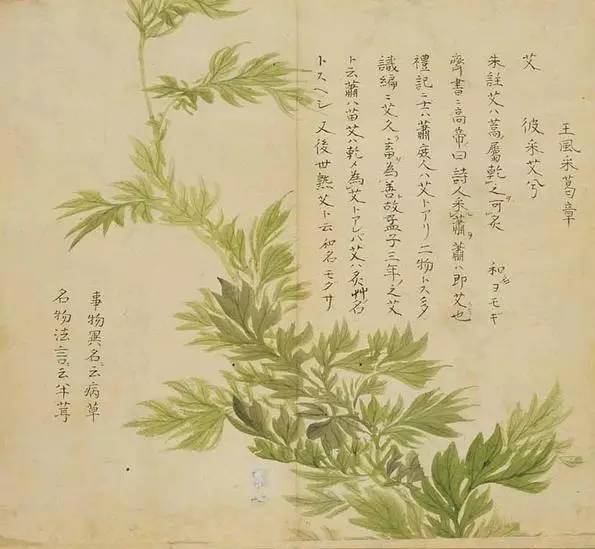 王風采葛章
艾　彼采艾兮
朱註艾ハ蒿屬乾之可灸　和名ヨモギ
齊書ニ高帝曰詩人采蕭蕭ハ即艾也
禮記ニ士ハ蕭庶人ハ艾トアリ二物トス多
識編ニ艾久畜為善故孟子三年之艾
ト云蕭ハ苗艾ハ乾〆為艾トアレバ艾ハ灸艸名
トスヘシ又後世熟艾ト云和名モグサ
事物異名云病草
名物法言云半茸